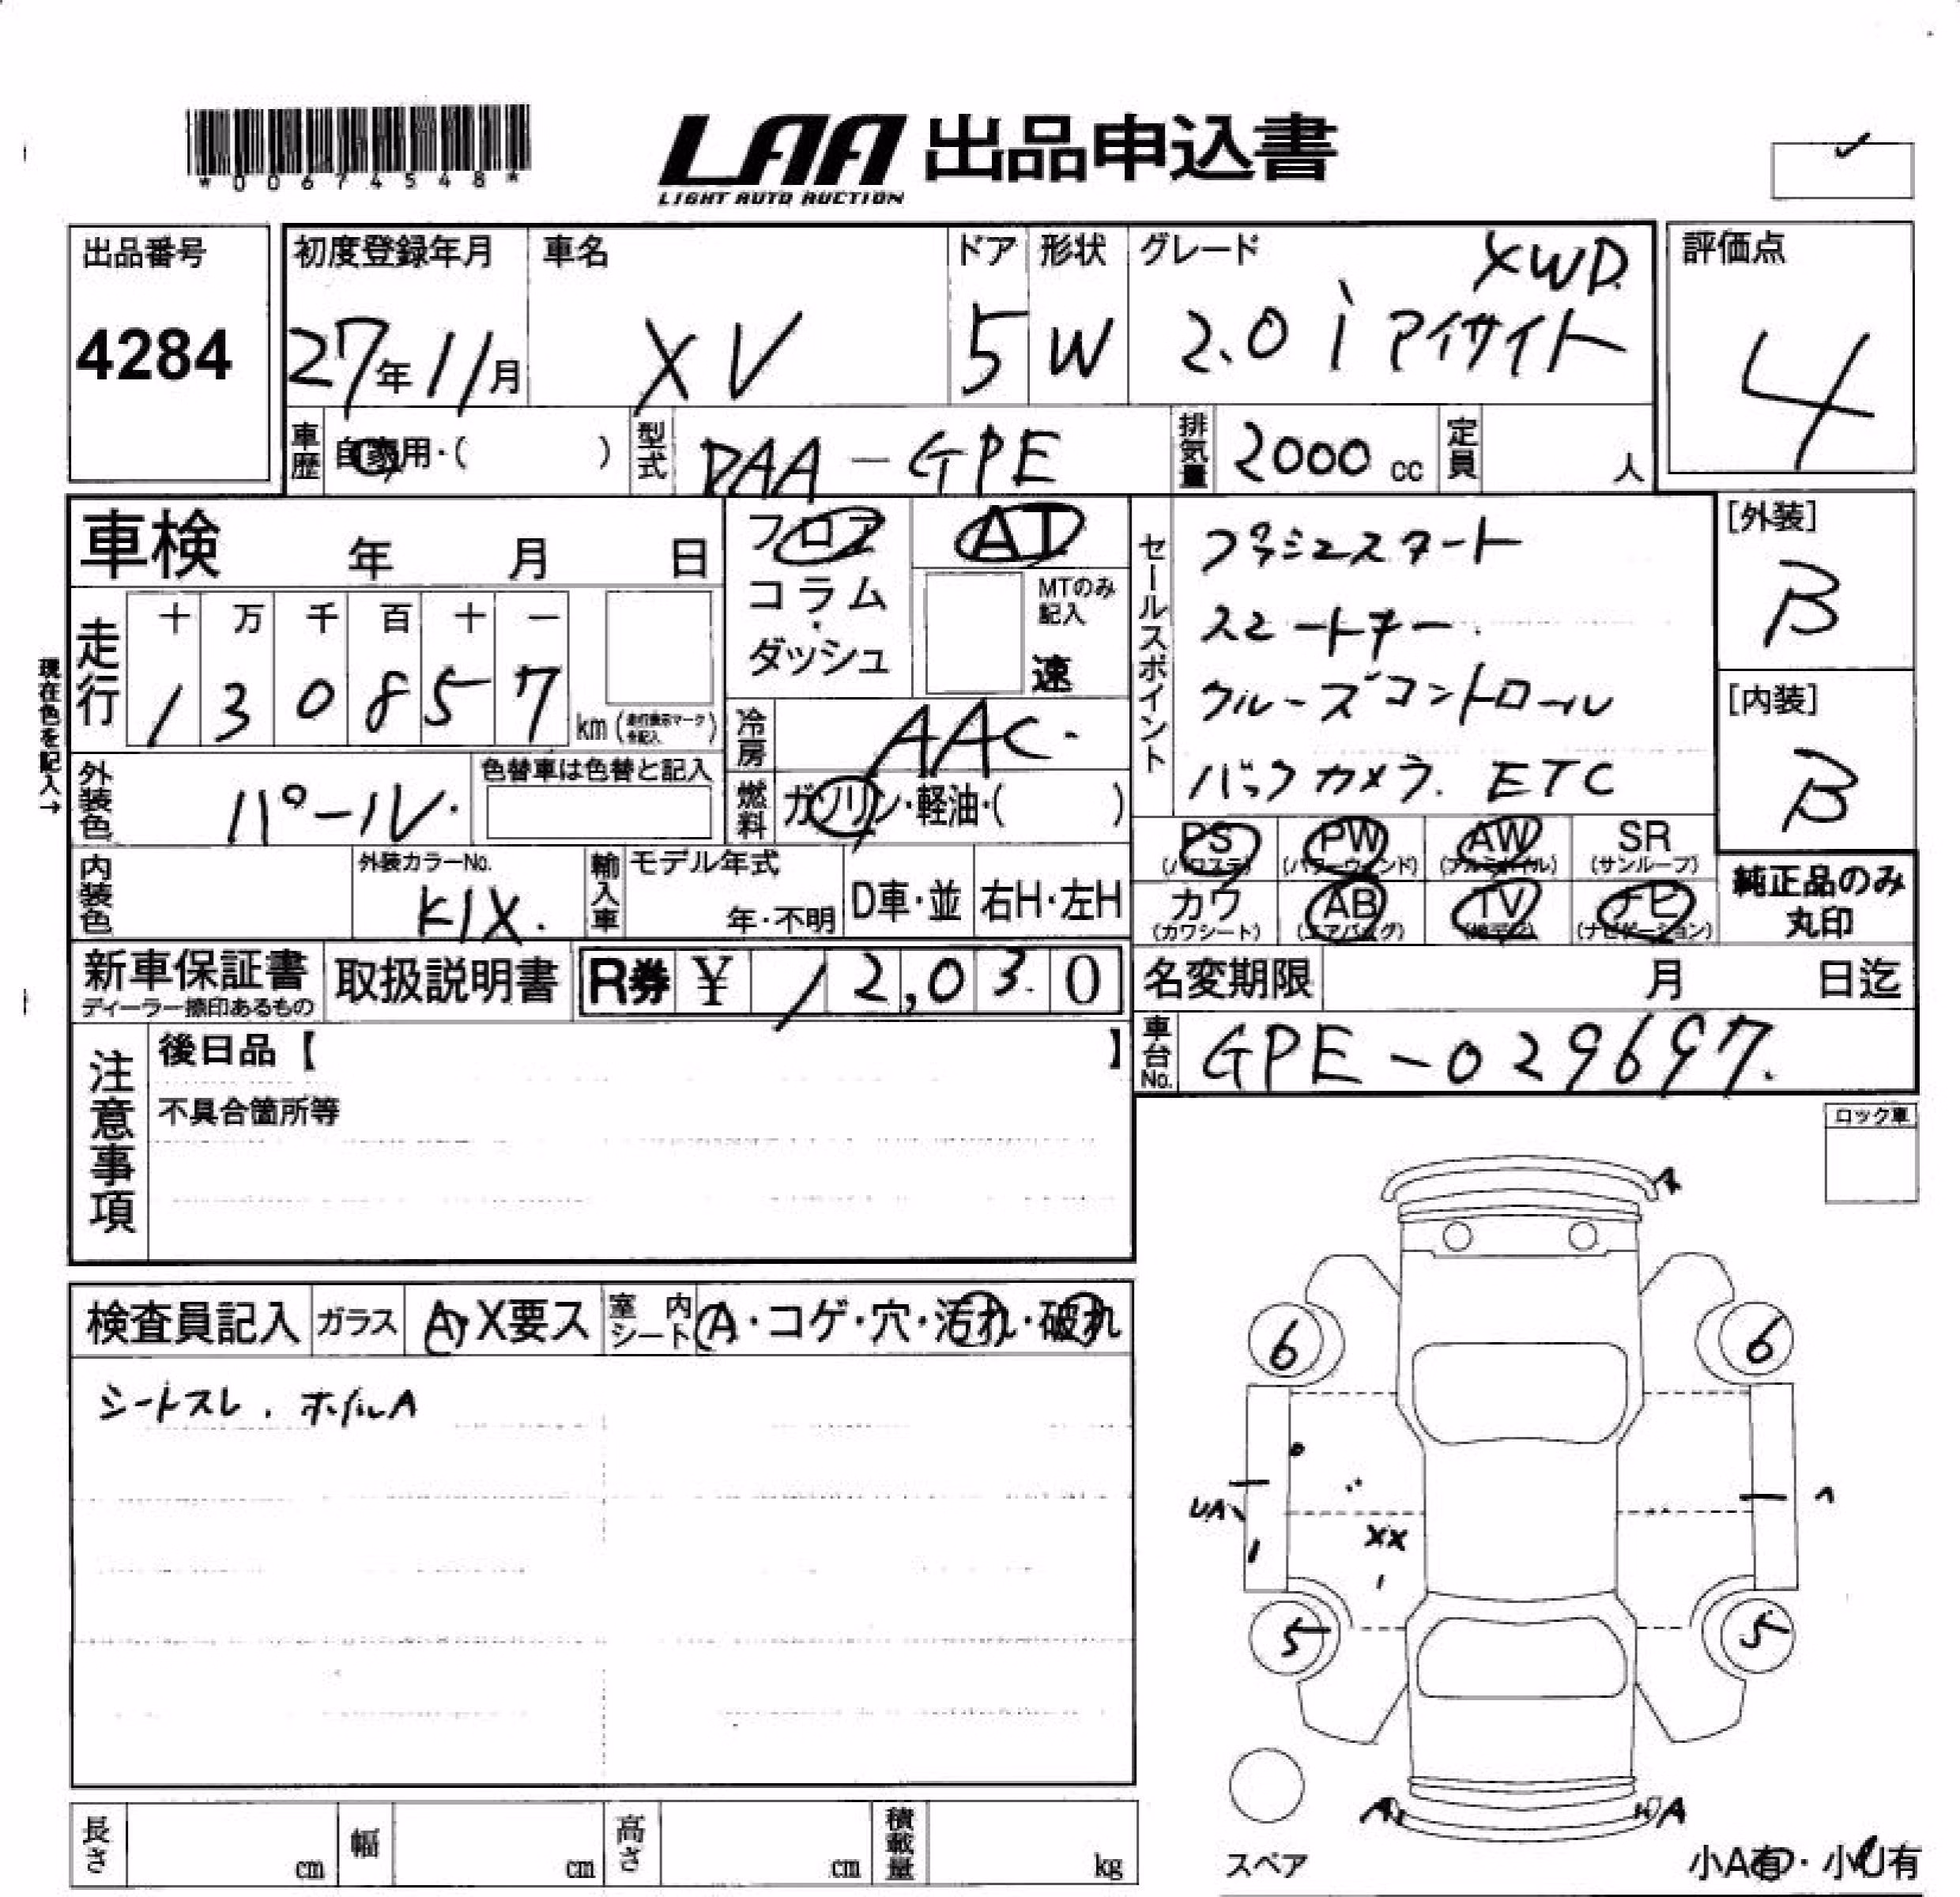 *00674548*
LAA 出品申込書
LIGHT AUTO AUCTION
出品番号
4284
初度登録年月
27年11月
車名
XV
ドア
5
形状
W
グレード
XWD
2.0i アイサイト
評価点
4
車歴 自家用・( )
型式 DAA-GPE
排気量 2000 cc
定員 人
車検 年 月 日
フロア
コラム・ダッシュ
AT
MTのみ記入
速
セールスポイント
プッシュスタート
スマートキー.
クルーズコントロール
バックカメラ. ETC
[外装]
B
[内装]
B
現在色を記入→
走行
十 万 千 百 十 一
1 3 0 8 5 7
km (走行表示マークを記入)
冷房 AAC.
燃料 ガソリン・軽油・( )
外装色 パール.
色替車は色替と記入
内装色
外装カラーNo.
K1X.
輸入車
モデル年式
年・不明
D車・並
右H・左H
PS (パワステ)
PW (パワーウィンド)
AW (アルミホイル)
SR (サンルーフ)
カワ (カワシート)
AB (エアバッグ)
TV (地デジ)
ナビ (ナビゲーション)
純正品のみ
丸印
新車保証書
ディーラー捺印あるもの
取扱説明書
R券 ¥ 12,030
名変期限 月 日迄
車台No. GPE-029697.
注意事項
後日品【 】
不具合箇所等
ロック車
検査員記入
ガラス A・X要ス
室内シート A・コゲ・穴・汚れ・破れ
シートスレ. ホイルA
A
6 6
UA
XX
5 5
A A
スペア
小A有・小U有
長さ cm
幅 cm
高さ cm
積載量 kg